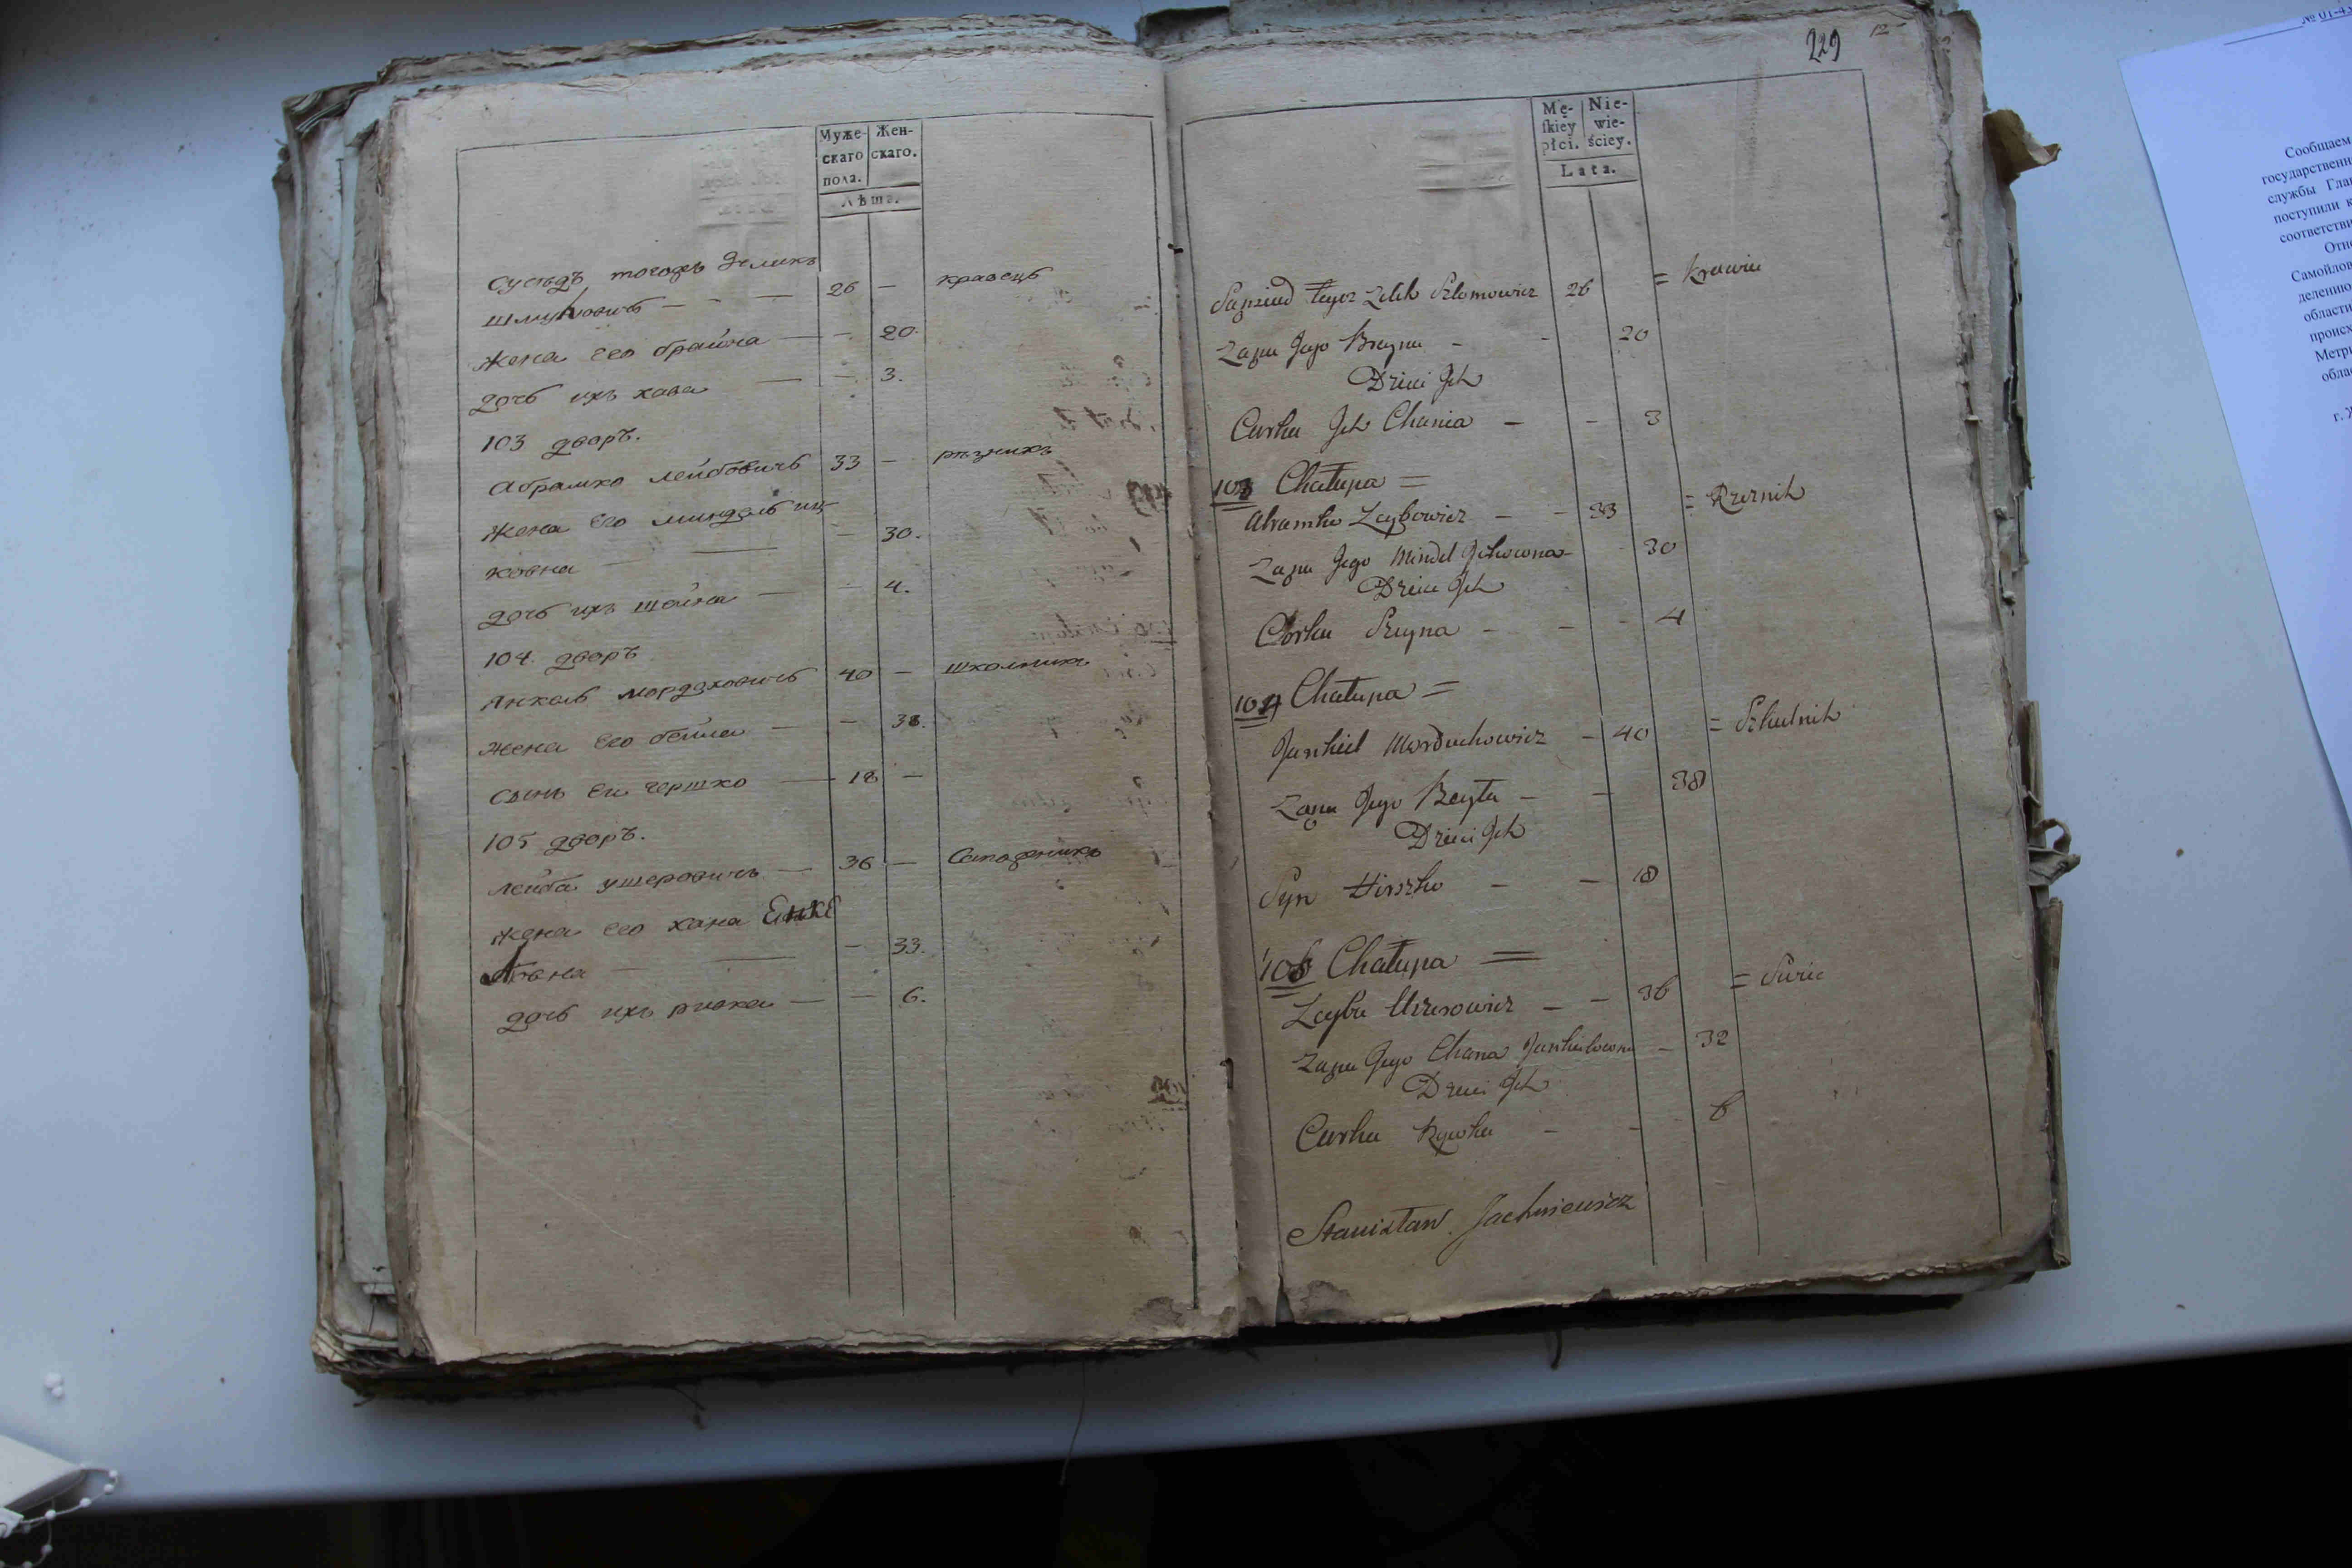 Муже-
скаго
пола.
Жен-
скаго.
Лѣта.
Сусѣдъ тогожъ Зеликъ
Шмуловичъ — — — 26 — кравецъ
Жена его брайна — — 20.
дочь ихъ хава — — 3.
103 дворъ.
абрамко лейбовичъ 33 — рѣзникъ
Жена его миндель иц
ковна — — — 30.
дочь ихъ шайна — — 4.
104. дворъ
Янкель мордуховичъ 40 — школникъ
жена его бейла — — 38.
сынъ ея гершко — 18 —
105 дворъ.
лейба ушеровичъ — 36 — Сапожникъ
жена его хана Енке
льовна — — — 33.
дочь ихъ ривка — — 6.
229
Mę-
skiey
płci.
Nie-
wie-
ściey.
Lata.
Sąsiad tegoz Zelik Szlomowicz 26 = Krawiec
Zaga Jego Brayna - - 20
Dzieci Ich
Curka Ich Chania - - 3
103 Chałupa =
Abramko Leybowicz - - 33 = Rzeznik
Zaga Jego Mindel Ickowna - 30
Dzieci Ich
Corka Szeyna - - - 4
104 Chałupa =
Jankiel Morduchowicz - 40 = Szkulnik
Zaga Jego Beyła - - 38
Dzieci Ich
Syn Hirszko - - 18
105 Chałupa =
Leyba Uszerowicz - - 36 =
Zaga Jego Chana Jankielowna - 32
Dzieci Ich
Curka Rywka - - 6
Stanisław Jachniewicz
Сообщаем
государственн
службы
поступили
соответстви
Самойлов
делению
области
происх
Метри